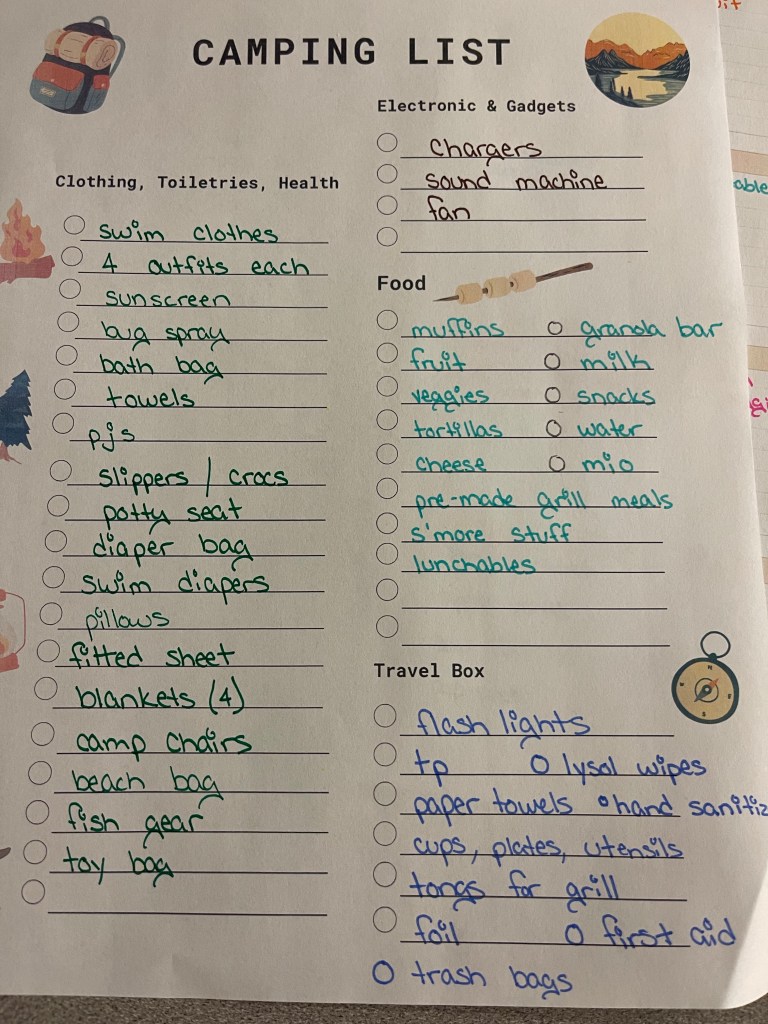 CAMPING LIST
Clothing, Toiletries, Health
swim clothes
4 outfits each
sunscreen
bug spray
bath bag
towels
pjs
slippers / crocs
potty seat
diaper bag
swim diapers
pillows
fitted sheet
blankets (4)
camp chairs
beach bag
fish gear
toy bag
Electronic & Gadgets
chargers
sound machine
fan
Food
muffins granola bar
fruit milk
veggies snacks
tortillas water
cheese mio
pre-made grill meals
s'more stuff
lunchables
Travel Box
flash lights
tp lysol wipes
paper towels hand sanitiz
cups, plates, utensils
tongs for grill
foil first aid
trash bags
able